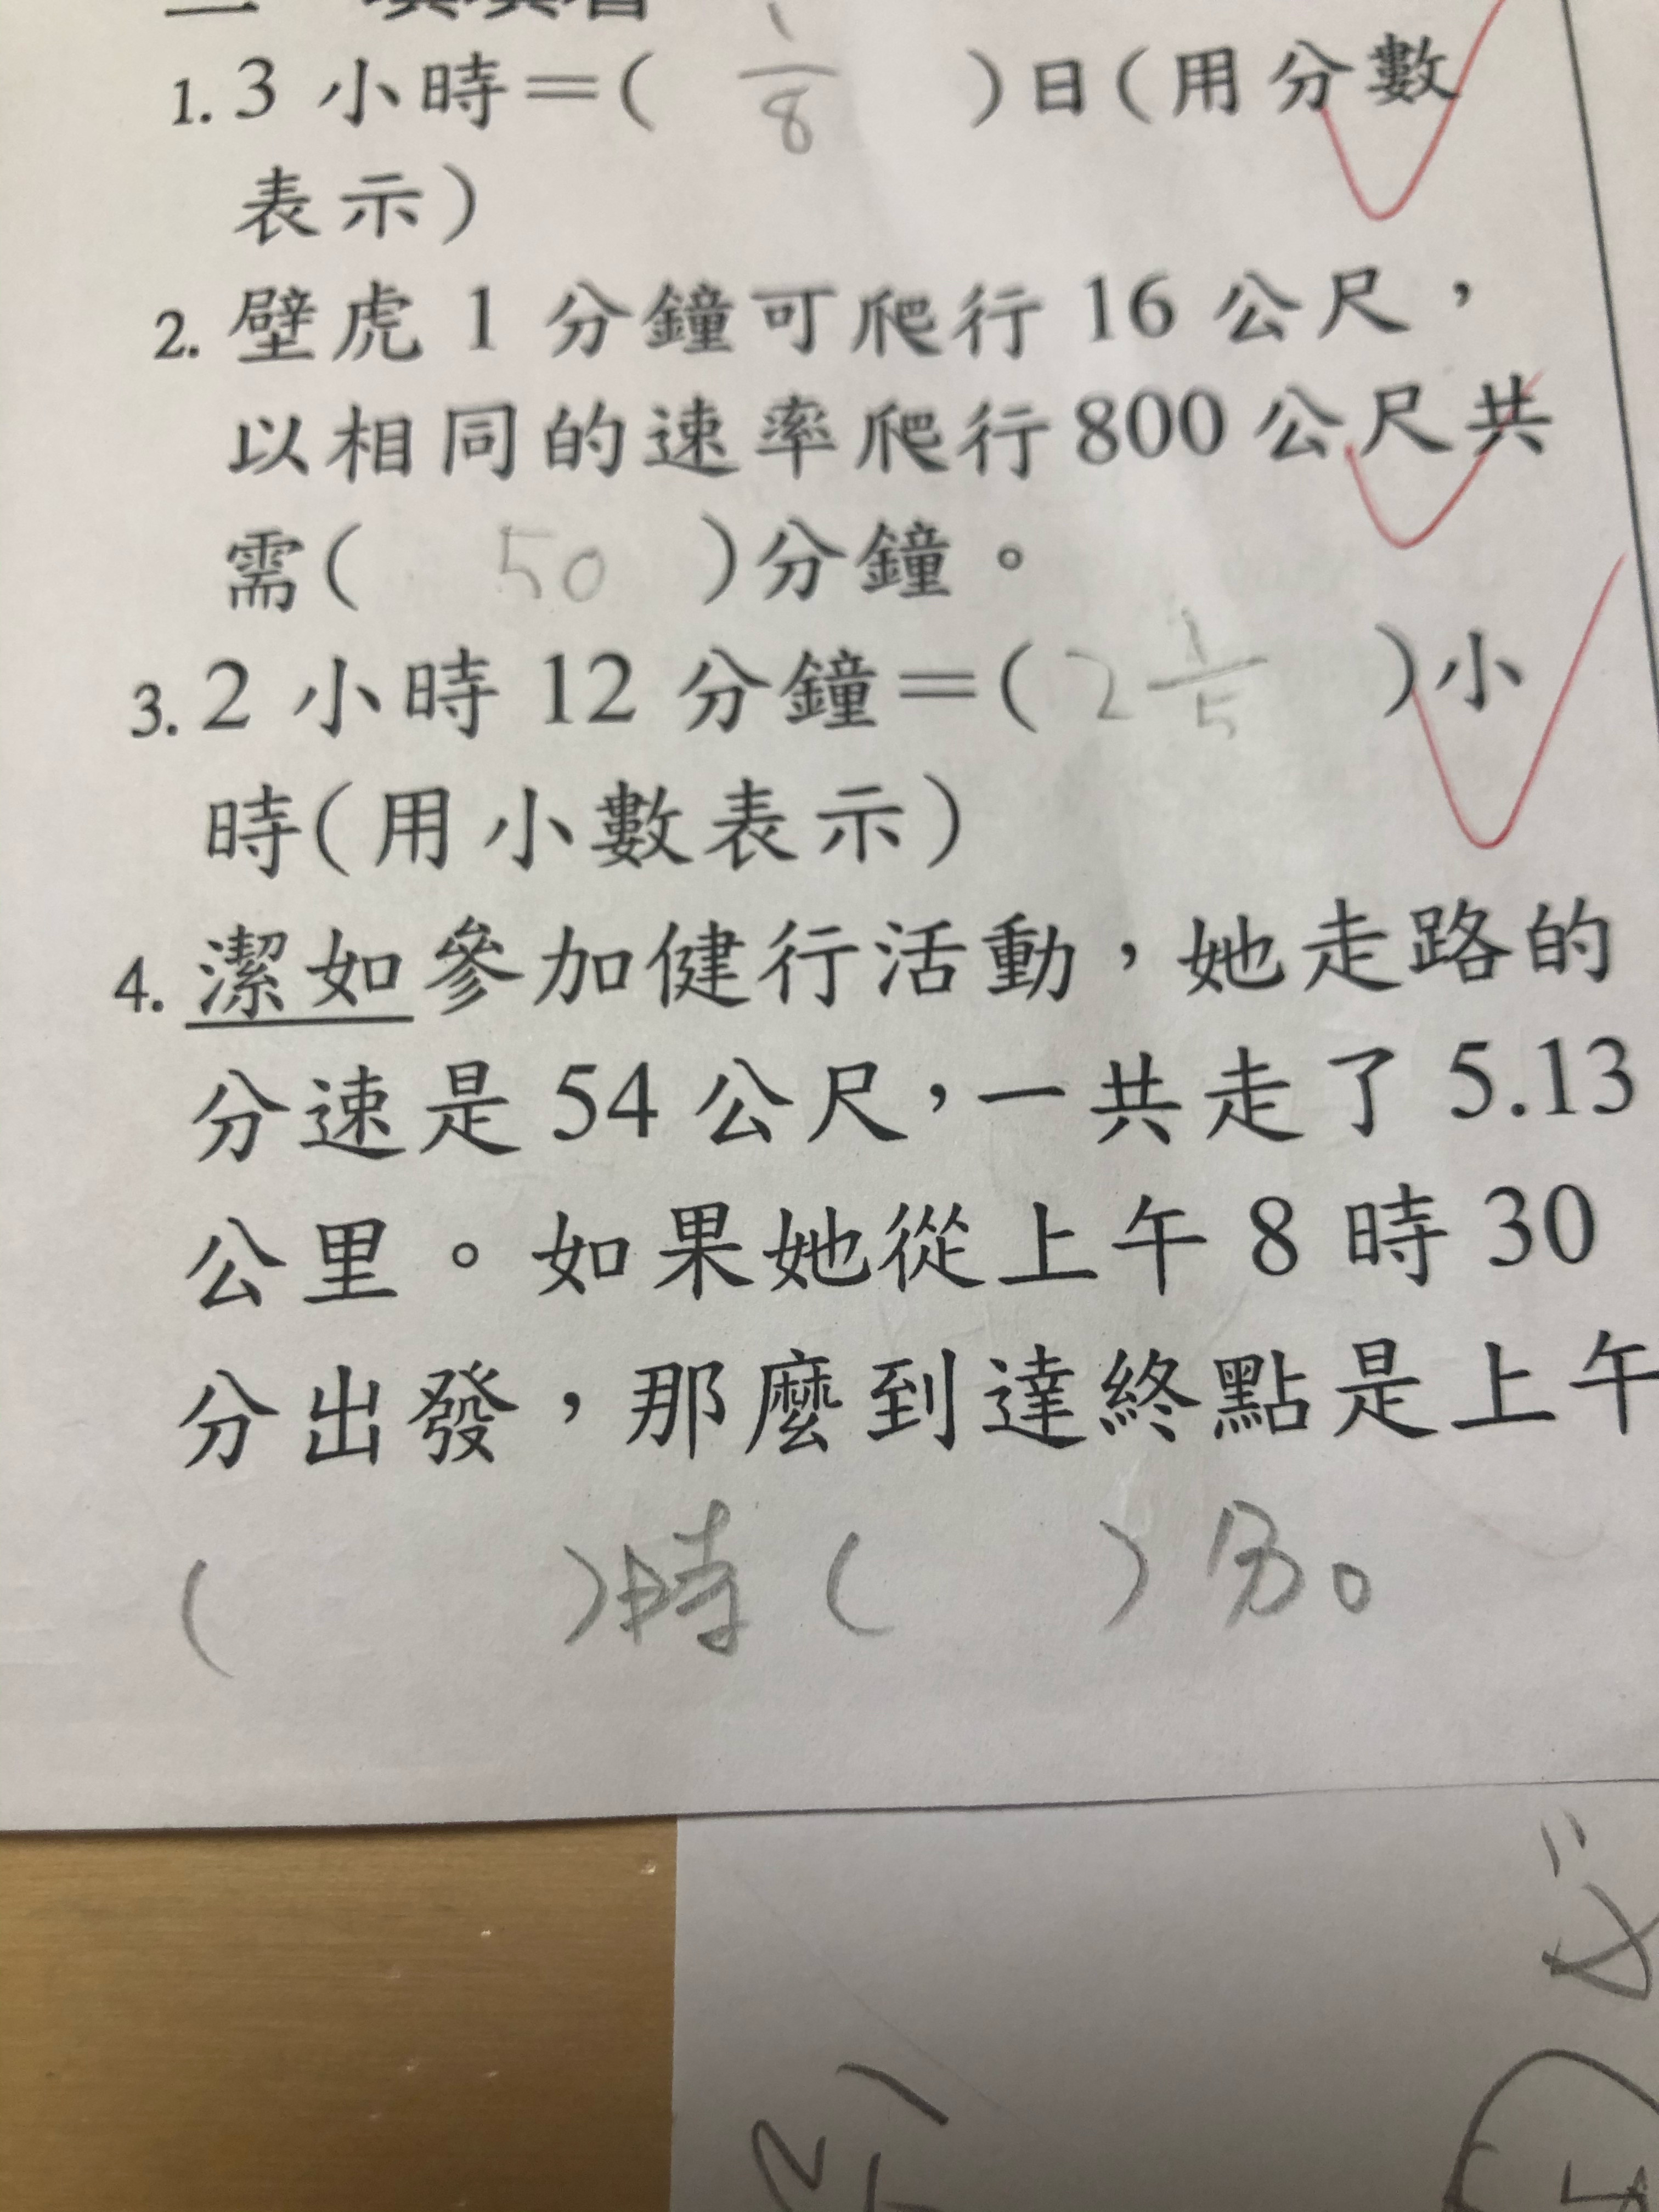 1. 3 小時=( 1/8 )日(用分數
表示)
2. 壁虎 1 分鐘可爬行 16 公尺，
以相同的速率爬行 800 公尺共
需( 50 )分鐘。
3. 2 小時 12 分鐘=( 2 1/5 )小
時(用小數表示)
4. 潔如參加健行活動，她走路的
分速是 54 公尺，一共走了 5.13
公里。如果她從上午 8 時 30
分出發，那麼到達終點是上午
( )時( )分。